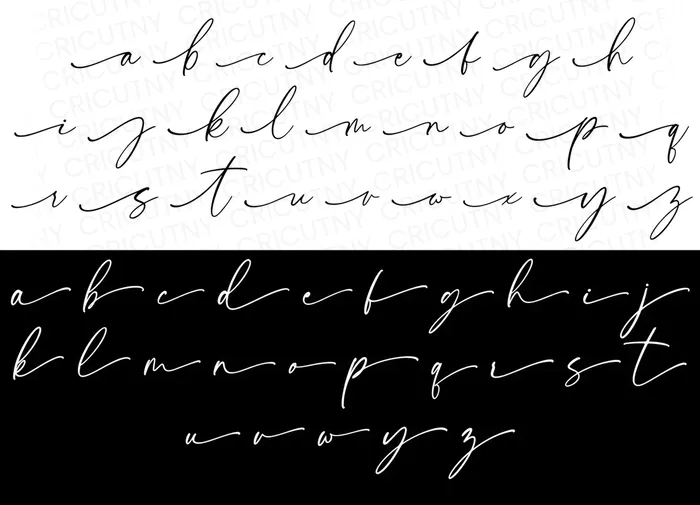 a b c d e f g h
i j k l m n o p q
r s t u v w x y z
a b c d e f g h i j
k l m n o p q r s t
u v w y z
CRICUTNY